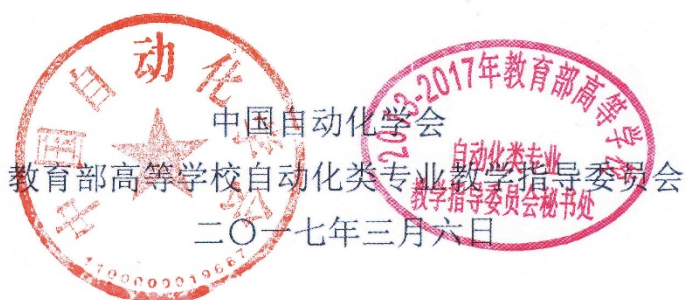 中国自动化学会
教育部高等学校自动化类专业教学指导委员会
二〇一七年三月六日
中国自动化学会
2013-2017年教育部高等学校
自动化类专业
教学指导委员会秘书处